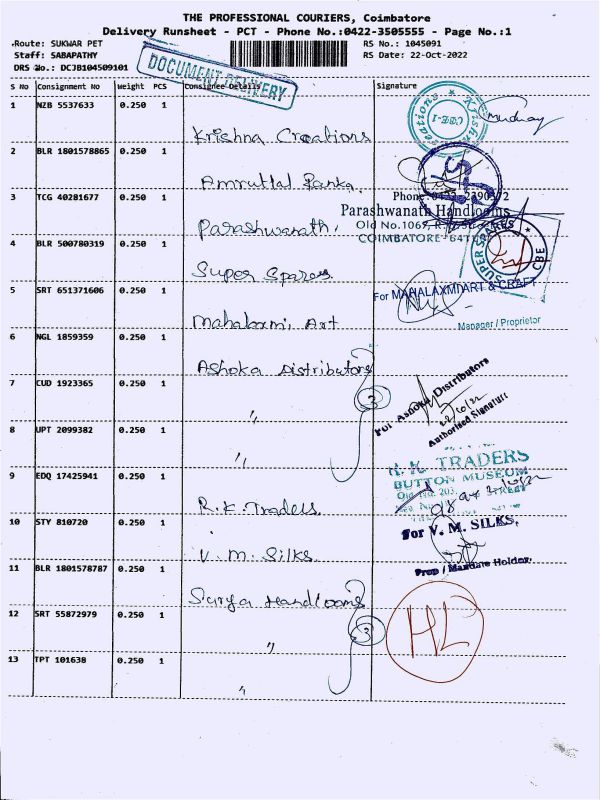 THE PROFESSIONAL COURIERS, Coimbatore
Delivery Runsheet - PCT - Phone No.:0422-3505555 - Page No.:1
Route: SUKWAR PET
RS No.: 1045091
Staff: SABAPATHY
RS Date: 22-Oct-2022
DRS No.: DCJB104509101
DOCUMENT DELIVERY
S No Consignment No Weight PCS Consignee Details Signature
1 NZB 5537633 0.250 1
Krishna Creations
2 BLR 1801578865 0.250 1
Amrutlal Panka
3 TCG 40281677 0.250 1
Phone: 0422-2390372
Parashwanath Handlooms
Old No.106
COIMBATORE-641
Parashwanath.
4 BLR 500780319 0.250 1
SUPER SPA
CBE
Super Spares
5 SRT 651371606 0.250 1
For MAHALAXMI ART & CRAFT
Manager / Proprietor
Mahalaxmi Art
6 NGL 1859359 0.250 1
Ashoka Distributors
3
7 CUD 1923365 0.250 1
For Ashoka Distributors
22/10/22
Authorised Signature
"
8 UPT 2099382 0.250 1
"
R.K. TRADERS
BUTTON MUSEUM
Old No. 203,
STREET
9 EDQ 17425941 0.250 1
R.K. Traders
10 STY 810720 0.250 1
For V. M. SILKS,
Prop / Mandate Holder
V.M. Silks
11 BLR 1801578787 0.250 1
Surya Handlooms
3
12 SRT 55872979 0.250 1
HL
"
13 TPT 101638 0.250 1
"